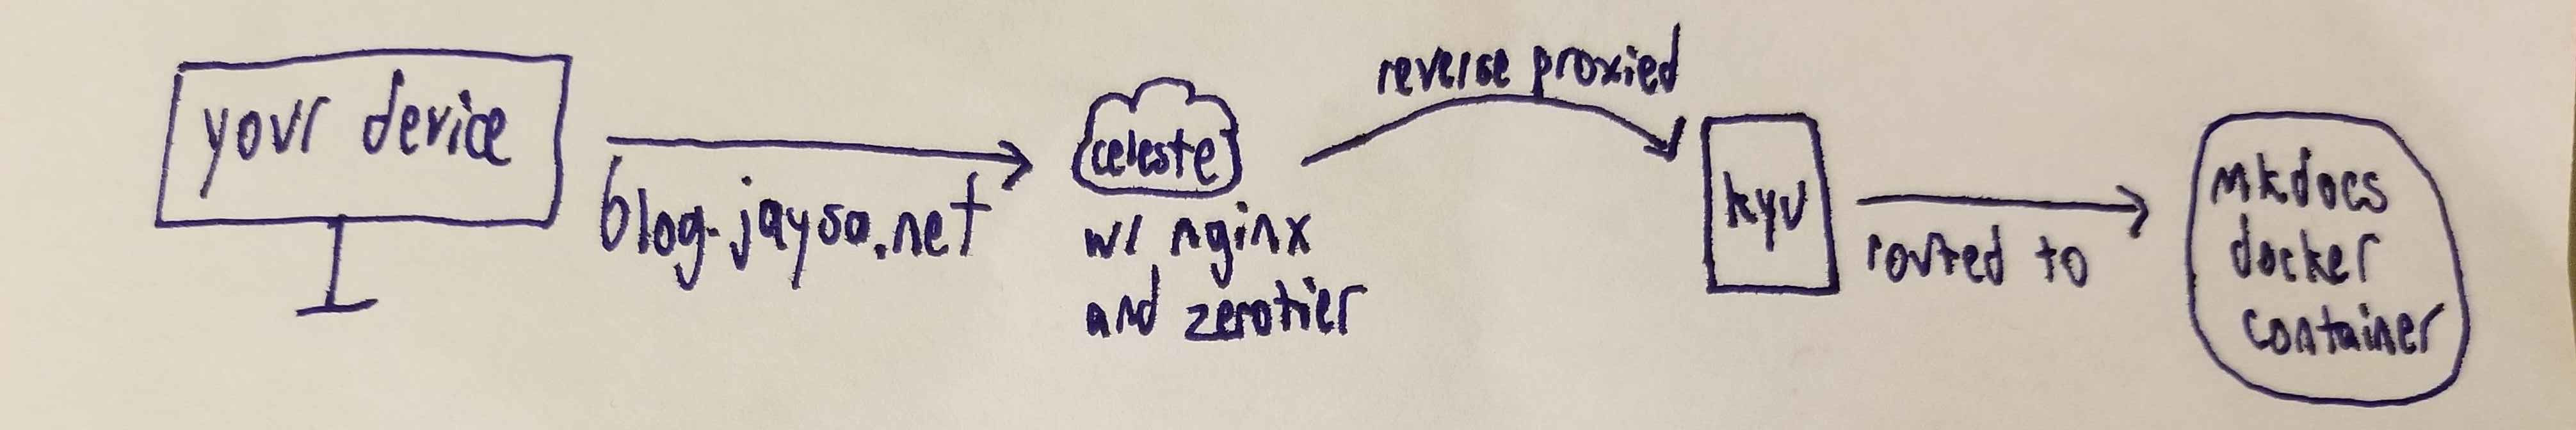 your device
blog.jayso.net
celeste
w/ nginx
and zerotier
reverse proxied
kyu
routed to
mkdocs
docker
container